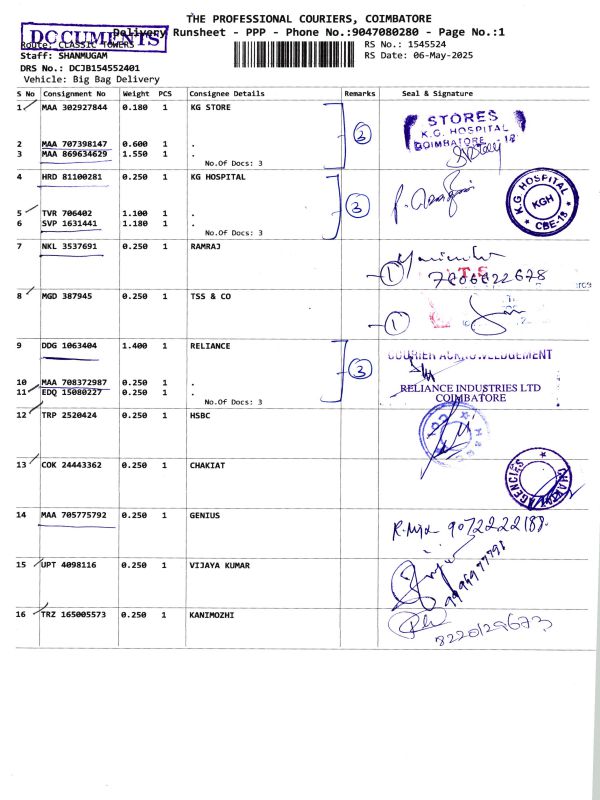 THE PROFESSIONAL COURIERS, COIMBATORE
DOCUMENTS
Delivery Runsheet - PPP - Phone No.:9047080280 - Page No.:1
Route: CLASSIC TOWERS
RS No.: 1545524
Staff: SHANMUGAM
RS Date: 06-May-2025
DRS No.: DCJB154552401
Vehicle: Big Bag Delivery
S No Consignment No Weight PCS Consignee Details Remarks Seal & Signature
1 MAA 302927844 0.180 1 KG STORE
STORES
K.G. HOSPITAL
COIMBATORE - 18
3
2 MAA 707398147 0.600 1 .
3 MAA 869634629 1.550 1 .
No.Of Docs: 3
4 HRD 81100281 0.250 1 KG HOSPITAL
K.G HOSPITAL
KGH
CBE-18
3
5 TVR 706402 1.100 1 .
6 SVP 1631441 1.180 1 .
No.Of Docs: 3
7 NKL 3537691 0.250 1 RAMRAJ
1
T.S
8 MGD 387945 0.250 1 TSS & CO
1
9 DDG 1063404 1.400 1 RELIANCE
COURIER ACKNOWLEDGEMENT
3
10 MAA 708372987 0.250 1 .
11 EDQ 15080227 0.250 1 .
RELIANCE INDUSTRIES LTD
COIMBATORE
No.Of Docs: 3
12 TRP 2520424 0.250 1 HSBC
13 COK 24443362 0.250 1 CHAKIAT
CHAKIAT AGENCIES
14 MAA 705775792 0.250 1 GENIUS
15 UPT 4098116 0.250 1 VIJAYA KUMAR
16 TRZ 165005573 0.250 1 KANIMOZHI
8220129673